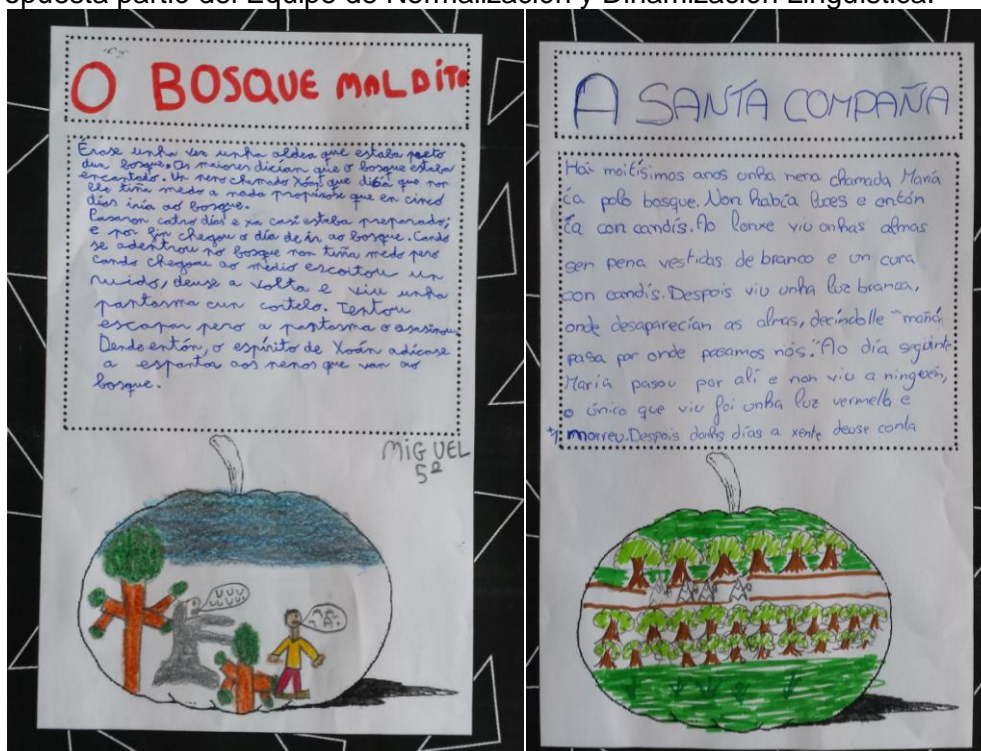 opuesta partió del Equipo de Normalización y Dinamización Lingüística.
O BOSQUE MALDITO
Érase unha vez unha aldea que estaba preto
dun bosque. Os maiores dician que o bosque estaba
encantado. Un neno chamado Xoán que dicía que non
lle tiña medo a nada propúxose que en cinco
días iría ao bosque.
Pasaron catro días e xa casi estaba preparado;
e por fin chegou o día de ir ao bosque. Cando
se adentrou no bosque non tiña medo pero
cando chegou ao medio escoitou un
ruido, deuse a volta e viu unha
pantasma cun coitelo. Tentou
escapar pero a pantasma o asasinou.
Dende entón, o espírito de Xoán adícase
a espantar aos nenos que van ao
bosque.
MIGUEL
5º
A SANTA COMPAÑA
Hai moitísimos anos unha nena chamada María
ía polo bosque. Non había luces e entón
ía con candís. Ao lonxe viu unhas almas
sen pena vestidas de branco e un cura
con candís. Despois viu unha luz branca,
onde desaparecían as almas, decíndolle "mañá
pasa por onde pasamos nós." Ao día seguinte
María pasou por alí e non viu a ninguén,
o único que viu foi unha luz vermella e
morreu. Despois dunhs días a xente deuse conta